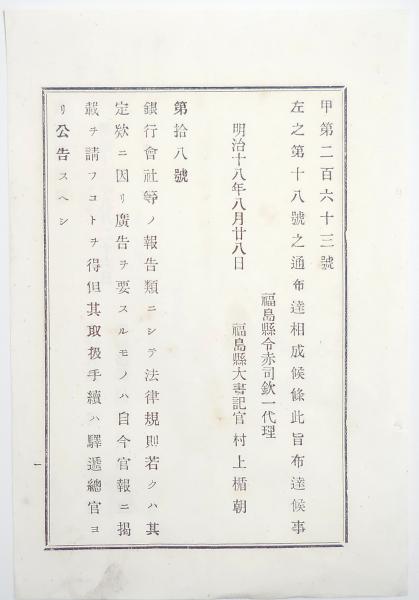 甲第二百六十三號
左之第十八號之通布達相成候條此旨布達候事
福島縣令赤司欽一代理
明治十八年八月廿八日　福島縣大書記官　村上楯朝
第拾八號
銀行會社等ノ報告類ニシテ法律規則若クハ其
定欵ニ因リ廣告ヲ要スルモノハ自今官報ニ掲
載ヲ請フコトヲ得但其取扱手續ハ驛遞總官ヨ
リ公告スヘシ
一